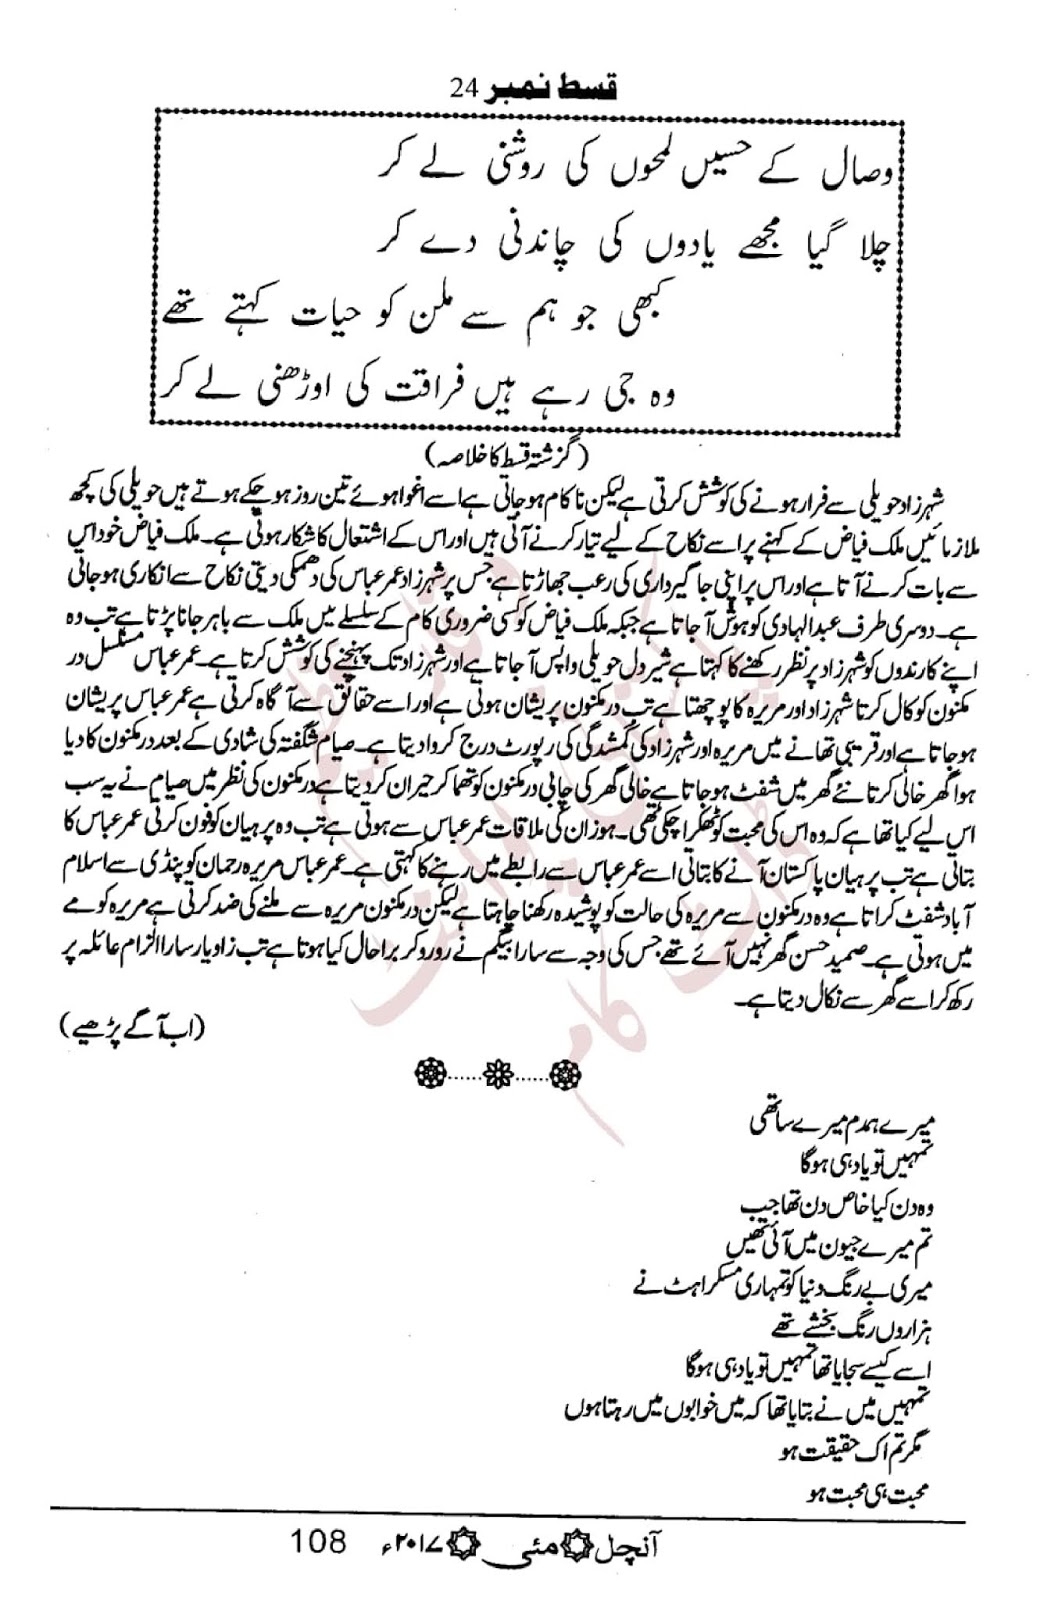 قسط نمبر 24
وصال کے حسیں لمحوں کی روشنی لے کر
چلا گیا مجھے یادوں کی چاندنی دے کر
کبھی جو ہم سے ملن کو حیات کہتے تھے
وہ جی رہے ہیں فراقت کی اوڑھنی لے کر
(گزشتہ قسط کا خلاصہ)
شہرزاد حویلی سے فرار ہونے کی کوشش کرتی ہے لیکن ناکام ہوجاتی ہے اسے اغوا ہوئے تین روز ہوچکے ہوتے ہیں حویلی کی کچھ
ملازمائیں ملک فیاض کے کہنے پر اسے نکاح کے لیے تیار کرنے آتی ہیں اور اس کے اشتعال کا شکار ہوتی ہے۔ ملک فیاض خود اس
سے بات کرنے آتا ہے اور اس پر اپنی جاگیرداری کی رعب جھاڑتا ہے جس پر شہرزاد عمر عباس کی دھمکی دیتی نکاح سے انکاری ہوجاتی
ہے۔ دوسری طرف عبدالہادی کو ہوش آجاتا ہے جبکہ ملک فیاض کو کسی ضروری کام کے سلسلے میں ملک سے باہر جانا پڑتا ہے تب وہ
اپنے کارندوں کو شہرزاد پر نظر رکھنے کا کہتا ہے شیر دل حویلی واپس آجاتا ہے اور شہرزاد تک پہنچنے کی کوشش کرتا ہے۔ عمر عباس مسلسل در
مکنون کو کال کرتا شہرزاد اور مریرہ کا پوچھتا ہے تب درمکنون پریشان ہوتی ہے اور اسے حقائق سے آگاہ کرتی ہے عمر عباس پریشان
ہوجاتا ہے اور قریبی تھانے میں مریرہ اور شہرزاد کی گمشدگی کی رپورٹ درج کروا دیتا ہے۔ صیام شگفتہ کی شادی کے بعد درمکنون کا دیا
ہوا گھر خالی کرتا نئے گھر میں شفٹ ہوجاتا ہے خالی گھر کی چابی درمکنون کو تھما کر حیران کردیتا ہے درمکنون کی نظر میں صیام نے یہ سب
اس لیے کیا تھا ہے کہ وہ اس کی محبت کو ٹھکرا چکی تھی۔ ہوزان کی ملاقات عمر عباس سے ہوتی ہے تب وہ پرہیان کو فون کرتی عمر عباس کا
بتاتی ہے تب پرہیان پاکستان آنے کا بتاتی اسے عمر عباس سے رابطے میں رہنے کا کہتی ہے۔ عمر عباس مریرہ رحمان کو پنڈی سے اسلام
آباد شفٹ کراتا ہے وہ درمکنون سے مریرہ کی حالت کو پوشیدہ رکھنا چاہتا ہے لیکن درمکنون مریرہ سے ملنے کی ضد کرتی ہے مریرہ کومے
میں ہوتی ہے۔ صمید حسن گھر نہیں آئے تھے جس کی وجہ سے سارا بیگم نے رو رو کر برا حال کیا ہوتا ہے تب زاویار سارا الزام عائلہ پر
رکھ کر اسے گھر سے نکال دیتا ہے۔
(اب آگے پڑھیے)
میرے ہمدم میرے ساتھی
تمہیں تو یاد ہی ہوگا
وہ دن کیا خاص دن تھا جب
تم میرے جیون میں آئی تھیں
میری بے رنگ دنیا کو تمہاری مسکراہٹ نے
ہزاروں رنگ بخشے تھے
اسے کیسے سجایا تھا تمہیں تو یاد ہی ہوگا
تمہیں میں نے بتایا تھا کہ میں خوابوں میں رہتا ہوں
مگر تم اک حقیقت ہو
محبت ہی محبت ہو
آنچل مئی ۲۰۱۷ء 108